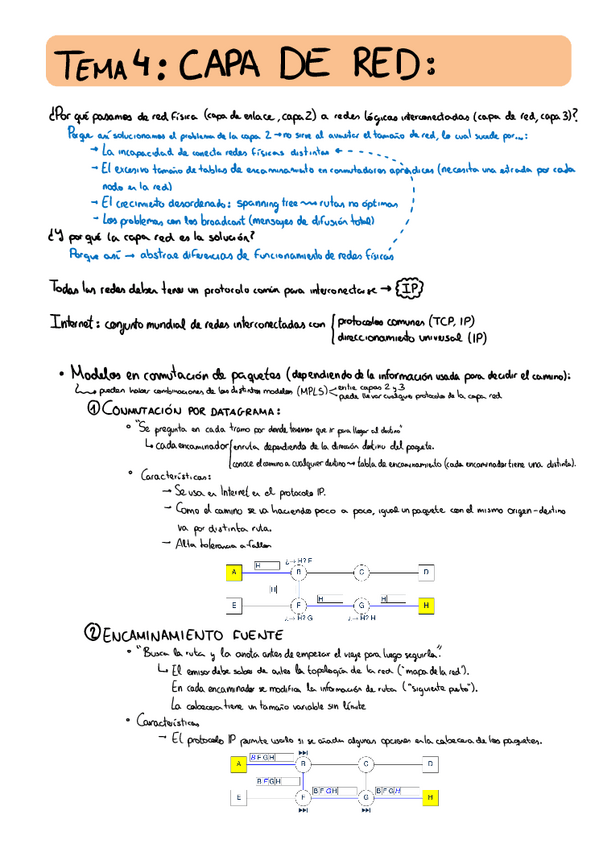 TEMA 4: CAPA DE RED:
¿Por qué pasamos de red física (capa de enlace, capa 2) a redes lógicas interconectadas (capa de red, capa 3)?
Porque así solucionamos el problema de la capa 2 → no sirve al aumentar el tamaño de red, lo cual sucede por...:
→ La incapacidad de conecta redes físicas distintas
→ El excesivo tamaño de tablas de encaminamiento en conmutadores aprendices (necesita una entrada por cada
nodo en la red)
→ El crecimiento desordenado: spanning tree → rutas no óptimas
→ Los problemas con los broadcast (mensajes de difusión total)
¿Y por qué la capa red es la solución?
Porque así → abstrae diferencias de funcionamiento de redes físicas
Todas las redes deben tener un protocolo común para interconectarse → IP
Internet: conjunto mundial de redes interconectadas con
protocolos comunes (TCP, IP)
direccionamiento universal (IP)
• Modelos en conmutación de paquetes (dependiendo de la información usada para decidir el camino):
pueden haber combinaciones de los distintos modelos (MPLS)
entre capas 2 y 3
puede llevar cualquier protocolo de la capa red
① CONMUTACIÓN POR DATAGRAMA:
• "Se pregunta en cada tramo por donde tenemos que ir para llegar al destino"
↳ cada encaminador
enruta dependiendo de la dirección destino del paquete.
conoce el camino a cualquier destino → tabla de encaminamiento (cada encaminador tiene una distinta).
• Características:
→ Se usa en Internet en el protocolo IP.
→ Como el camino se va haciendo poco a poco, igual un paquete con el mismo origen-destino
va por distinta ruta.
→ Alta tolerancia a fallos
¿→ H? F
A H B C D
H
E F H G H H
¿→ H? G ¿→ H? H
② ENCAMINAMIENTO FUENTE
• "Busca la ruta y la anota antes de empezar el viaje para luego seguirla".
↳ El emisor debe saber de antes la topología de la red ("mapa de la red").
En cada encaminador se modifica la información de ruta ("siguiente punto").
La cabecera tiene un tamaño variable sin límite
• Características
→ El protocolo IP permite usarlo si se añaden algunas opciones en la cabecera de los paquetes.
A B F G H B C D
B F G H
E F B F G H G B F G H H